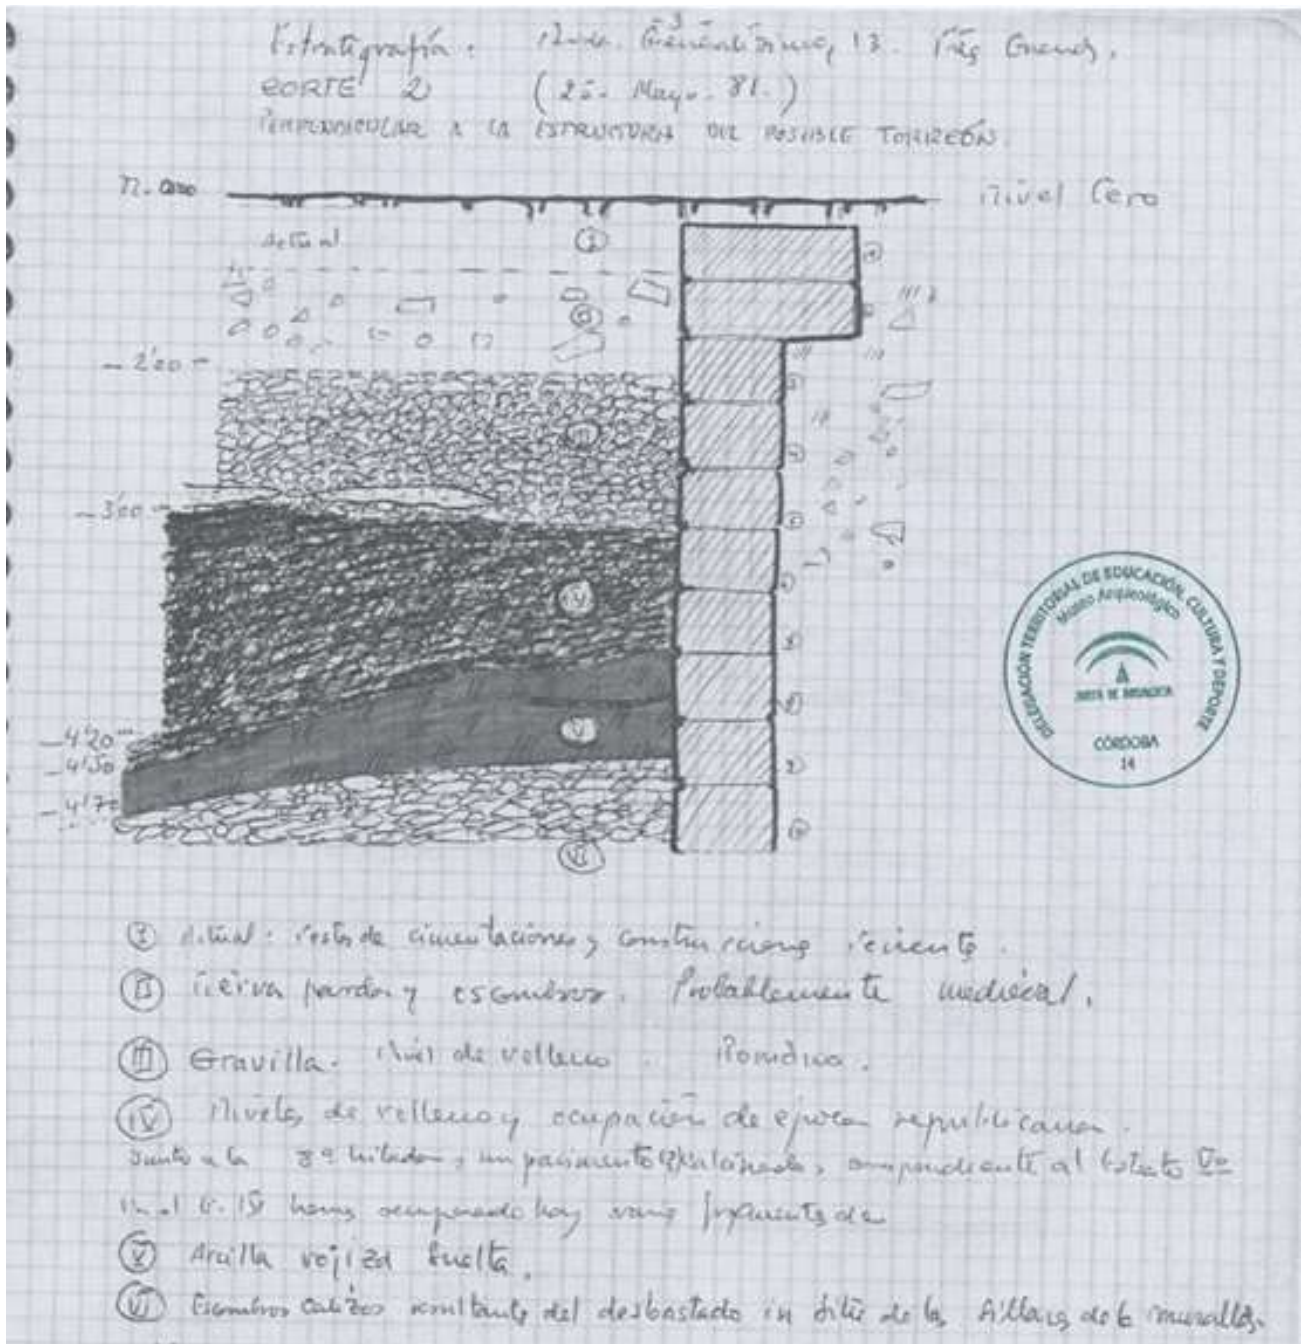 Estratigrafía: Avda. Generalísimo, 13. Tres Cruces.
CORTE 2 (25. Mayo. 81.)
PERPENDICULAR A LA ESTRUCTURA DEL POSIBLE TORREÓN.
n. cero
Nivel Cero
Actual I
II
- 2'20
III
- 3'00
IV
- 4'20
- 4'50
- 4'70
V
VI
DELEGACIÓN TERRITORIAL DE EDUCACIÓN, CULTURA Y DEPORTE
Museo Arqueológico
JUNTA DE ANDALUCÍA
CÓRDOBA
14
I Actual: restos de cimentaciones y construcciones reciente.
II tierra parda y escombros. Probablemente medieval.
III Gravilla. Nivel de relleno. Romano.
IV Niveles de relleno y ocupación de época republicana.
Junto a la 8ª hilada, un pavimento, correspondiente al Estrato
hemos recuperado hoy varios fragmentos de
V Arcilla rojiza suelta.
VI Escombros calizos resultante del desbastado in situ de los sillares de la muralla.